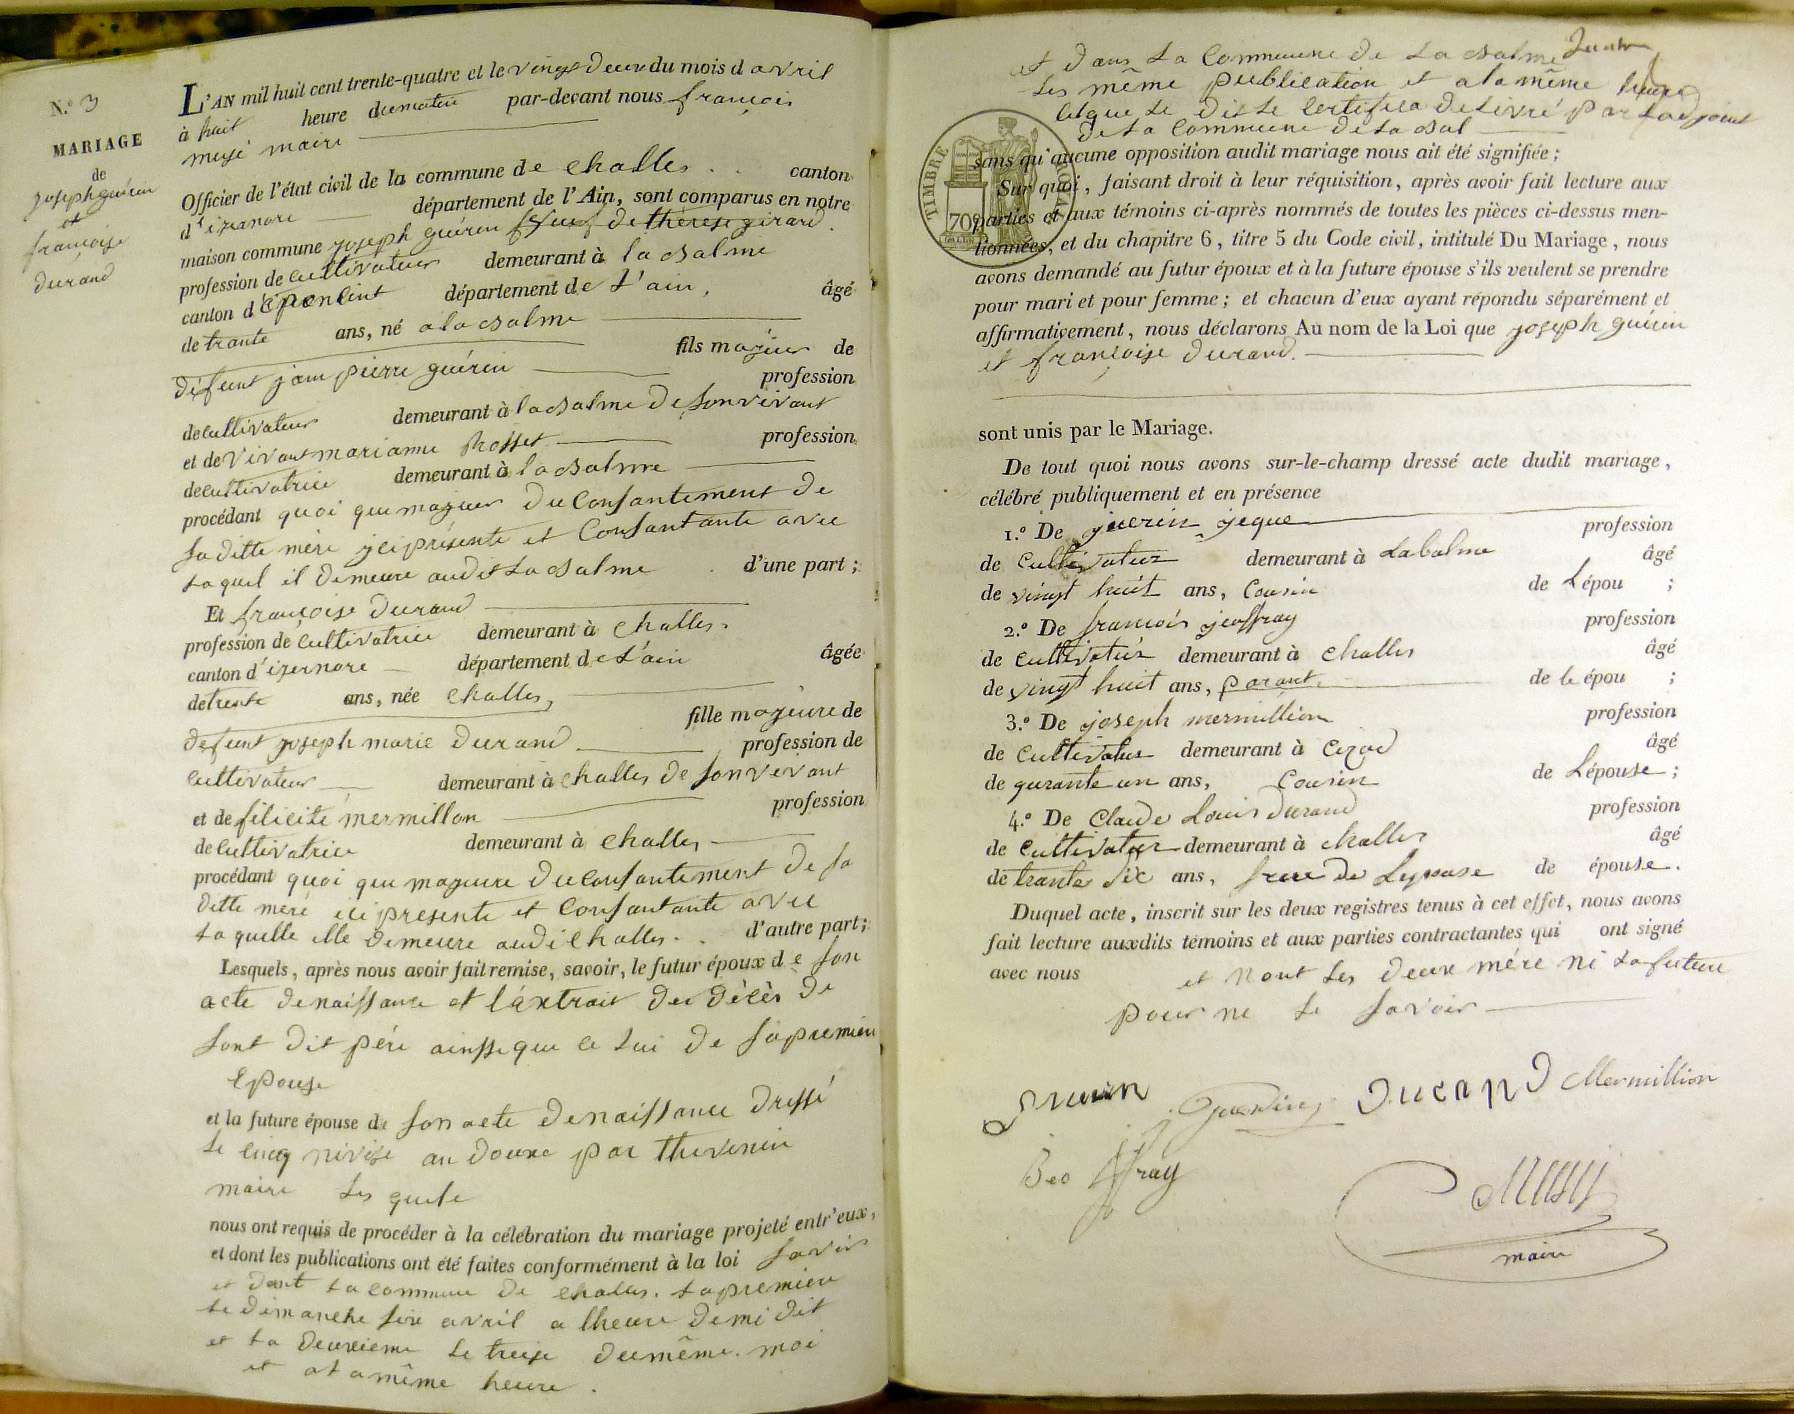 N.º 3
MARIAGE
de
joseph guérin
et
françoise
durand
L'AN mil huit cent trente-quatre et le vingt deux du mois d avril
à huit heure du matin par-devant nous françois
musi maire
Officier de l'état civil de la commune de Challes canton
d'izernore département de l'Ain, sont comparus en notre
maison commune joseph guérin veuf de thérèse girard
profession de cultivateur demeurant à la Balme
canton d' département de L'ain, âgé
de trante ans, né a la Balme
fils majeur de
défunt jean pierre guérin profession
de cultivateur demeurant à la Balme de son vivant
et de vivant marianne profession
de cultivatrice demeurant à la Balme
procédant quoi que majeur du Consantement de
sa ditte mère ici présente et Consantante avec
laquel il demeure audit La Balme d'une part ;
Et françoise durand
profession de cultivatrice demeurant à Challes
canton d'izernore département de L'ain âgée
de trente ans, née Challes,
fille majeure de
defunt joseph marie durand profession de
cultivateur demeurant à Challes de son vivant
et de félicité mermillon profession
de cultivatrice demeurant à Challes
procédant quoi que majeure du consantement de sa
ditte mère ici presente et Consantante avec
laquelle elle demeure audi Challes. d'autre part ;
Lesquels, après nous avoir fait remise, savoir, le futur époux de son
acte de naissance et l'axtrait des décès de
sont dit père ainssi que ce lui de sa premier
Epouse
et la future épouse de son acte de naissance dressé
le cinq nivose an douze par thevenin
maire les quele
nous ont requis de procéder à la célébration du mariage projeté entr'eux,
et dont les publications ont été faites conformément à la loi savoir
et dant la commune de Challes. la premier
le dimanche sixe avril a lheure de mi dit
et la deuxieme le treize du même moi
et a la même heure.
et dans la Commune de La Balme
les même publication et a la même heure
que le dit le certifica delivré par l'adjoint
de la Commune de La Bal
TIMBRE ROYAL
70
sans qu'aucune opposition audit mariage nous ait été signifiée ;
Sur quoi, faisant droit à leur réquisition, après avoir fait lecture aux
parties et aux témoins ci-après nommés de toutes les pièces ci-dessus men-
tionnées, et du chapitre 6, titre 5 du Code civil, intitulé Du Mariage, nous
avons demandé au futur époux et à la future épouse s'ils veulent se prendre
pour mari et pour femme ; et chacun d'eux ayant répondu séparément et
affirmativement, nous déclarons Au nom de la Loi que joseph guérin
et françoise durand.
sont unis par le Mariage.
De tout quoi nous avons sur-le-champ dressé acte dudit mariage,
célébré publiquement et en présence
1.º De guerin jeque profession
de Cultivateur demeurant à Labalme âgé
de vingt huit ans, Cousin de L'épou ;
2.º De francois jeoffray profession
de cultivateur demeurant à challes âgé
de vingt huit ans, parant de le épou ;
3.º De joseph mermillion profession
de Cultivateur demeurant à Cizod âgé
de quarante un ans, Cousin de L'épouse ;
4.º De Claude Louis durand profession
de Cultivateur demeurant à challes âgé
de trante sic ans, frere de Lepouse de épouse.
Duquel acte, inscrit sur les deux registres tenus à cet effet, nous avons
fait lecture auxdits témoins et aux parties contractantes qui ont signé
avec nous et nont les deux mére ni la future
pour ne le savoir
Guerin Durand Mermillion
Jeoffray Musy
maire